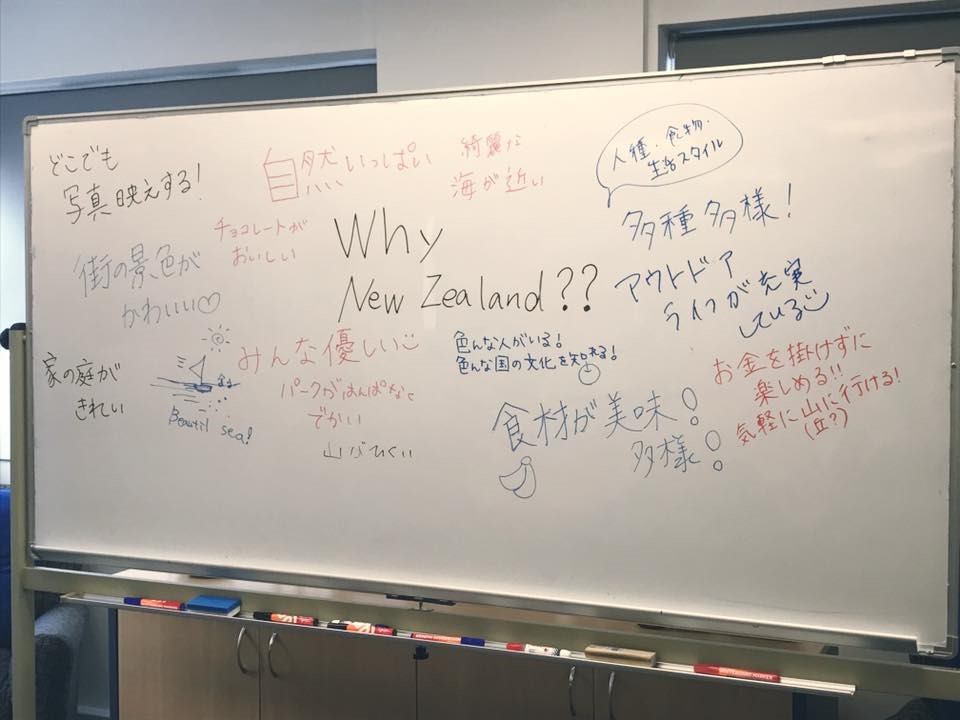 どこでも
写真映えする!
自然いっぱい
綺麗な
海が近い
人種・食べ物・
生活スタイル
多種多様!
街の景色が
かわいい
チョコレートが
おいしい
Why
New Zealand??
アウトドア
ライフが充実
している
家の庭が
きれい
Beautil sea!
みんな優しい
パークがはんぱなく
でかい
山がひくい
色んな人がいる!
色んな国の文化を知れる!
食材が美味!
多様!
お金を掛けずに
楽しめる!!
気軽に山に行ける!
(丘?)